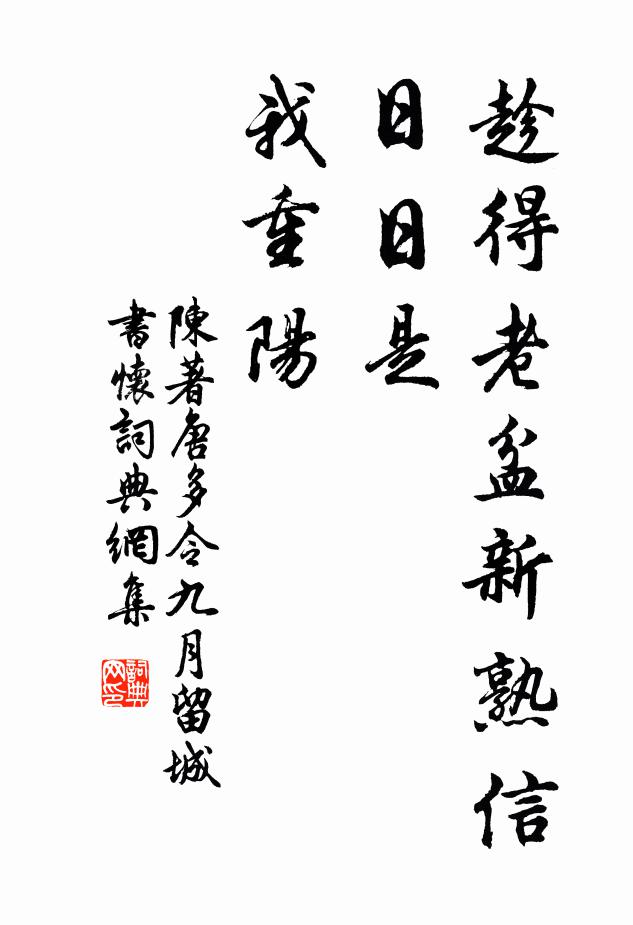 趁得老盆新熟信
日日是
我重陽
陳著唐多令九月留城
書懷詞典網集
詞典网印